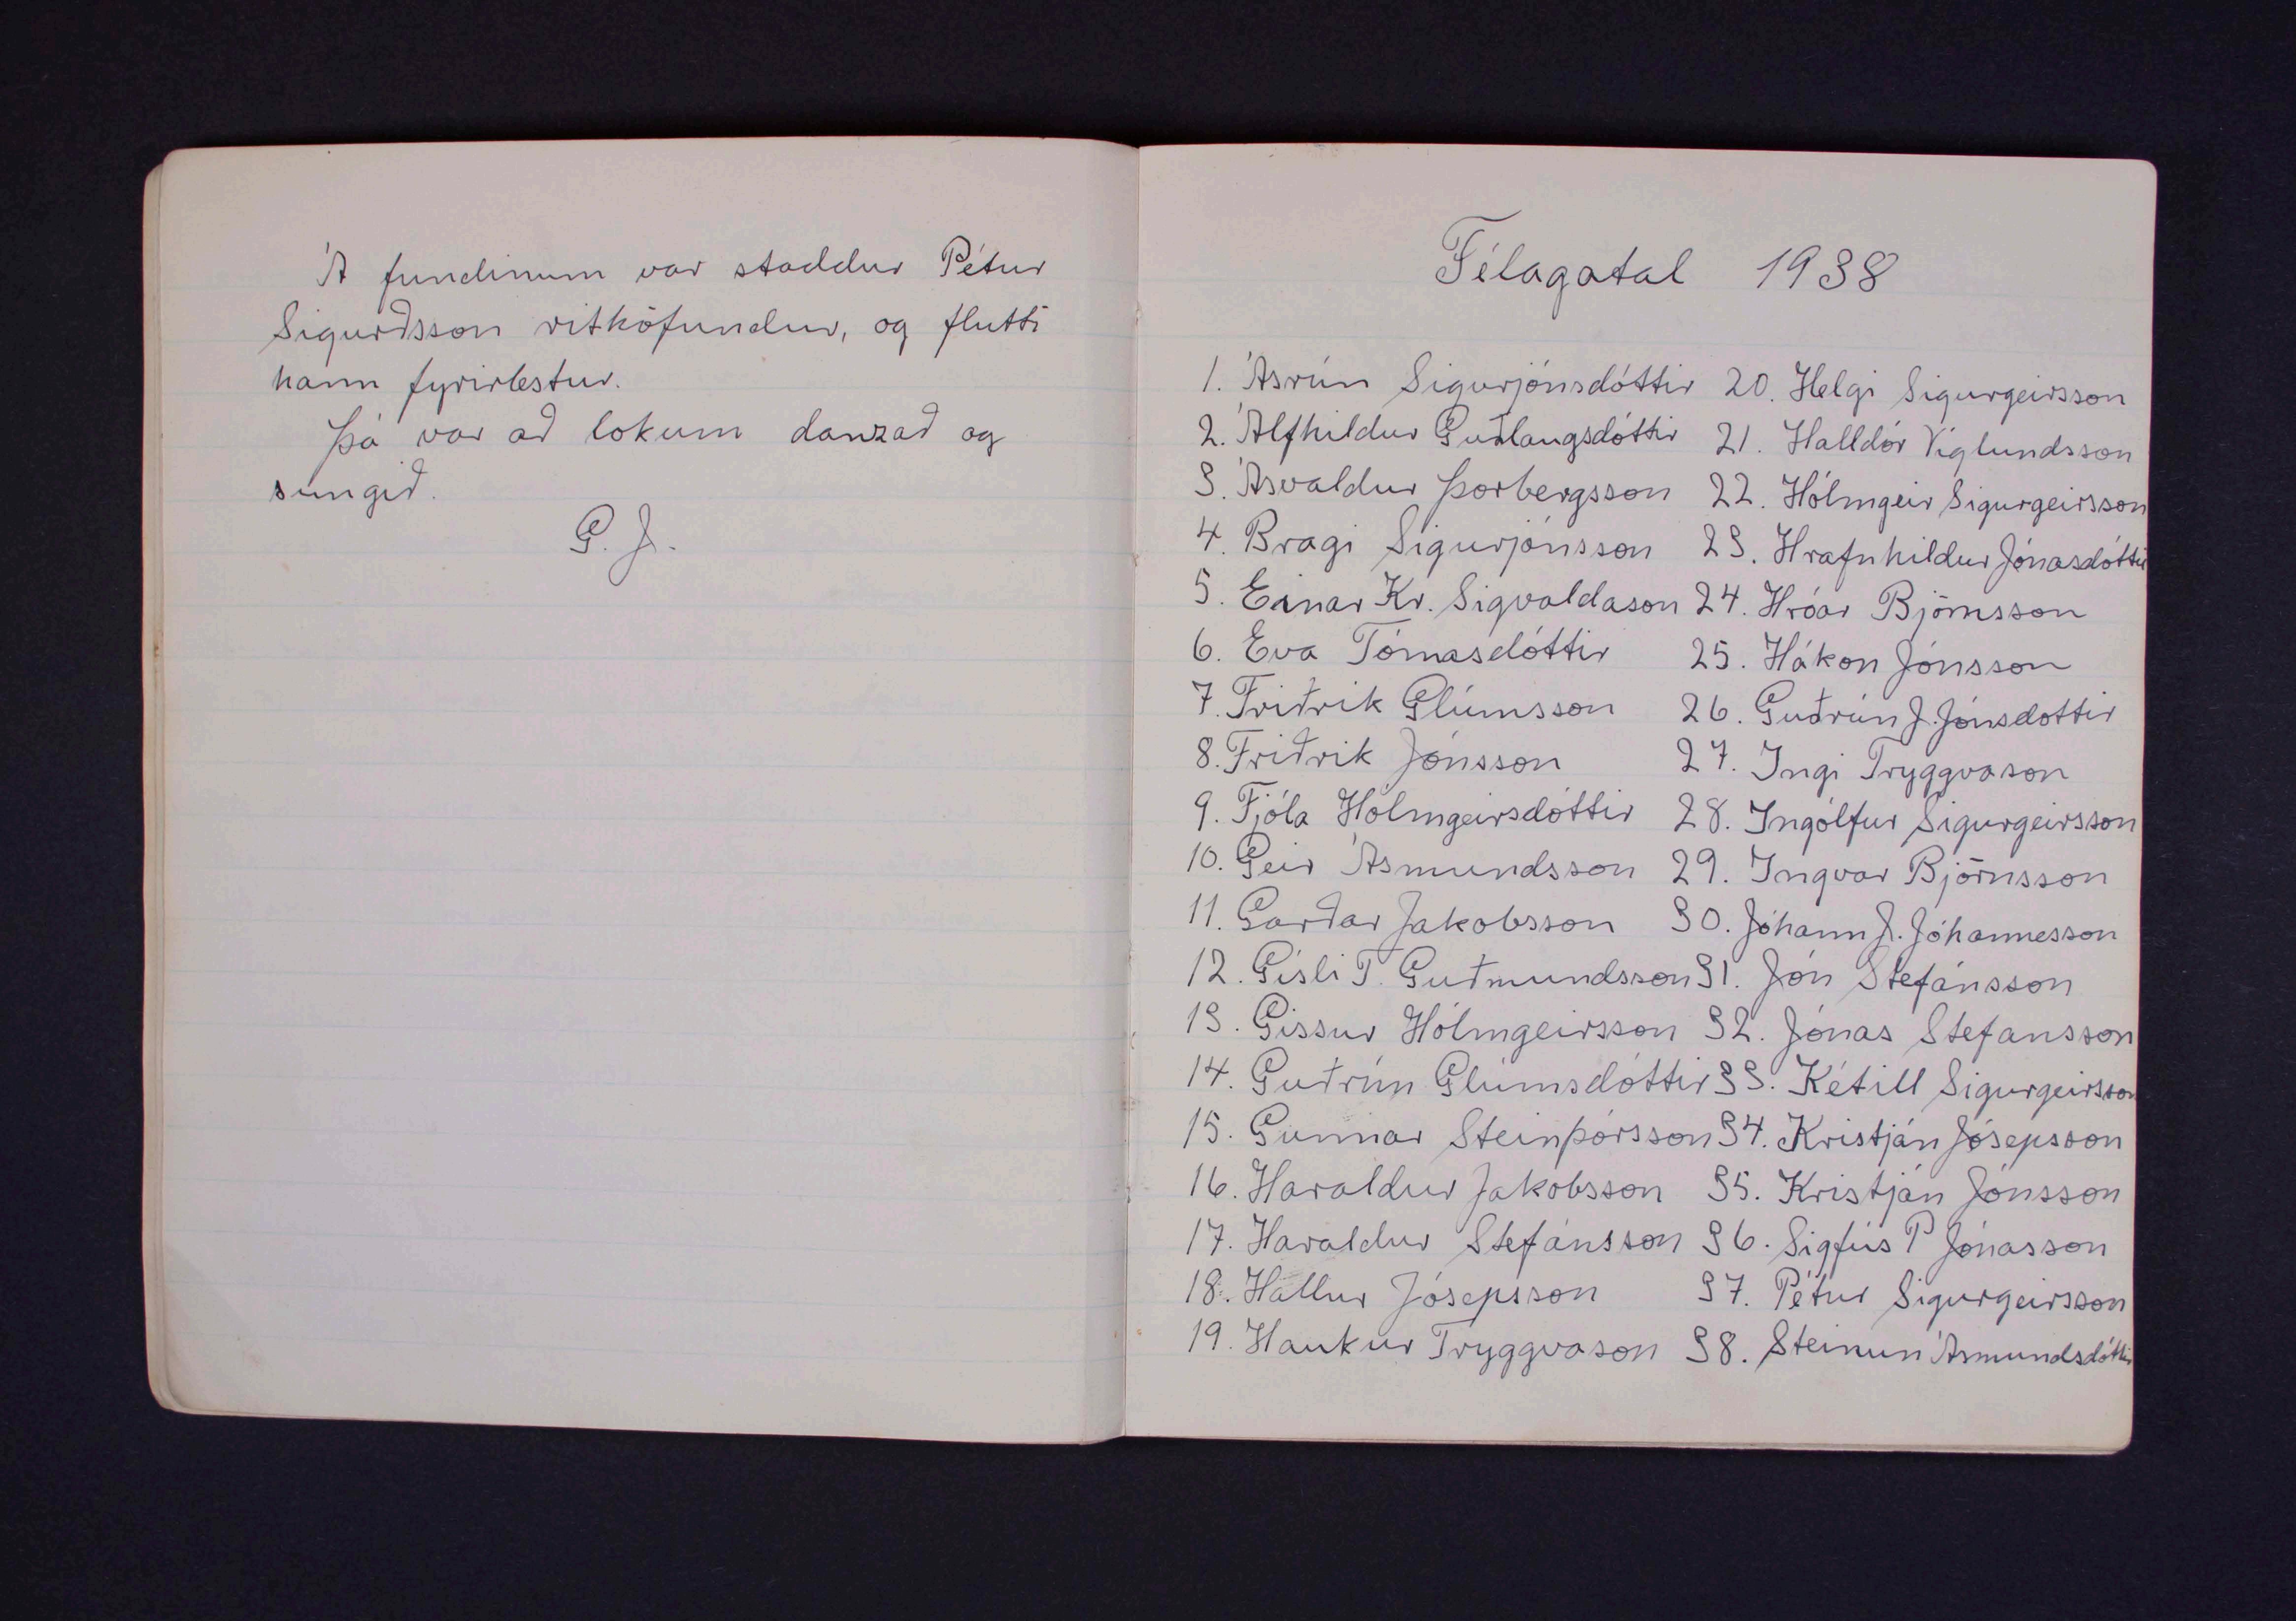 Á fundinum var staddur Pétur
Sigurðsson rithöfundur, og flutti
hann fyrirlestur.
Þá var að lokum danzað og
sungið.
G. J.
Félagatal 1938
1. Ásrún Sigurjónsdóttir
2. Álfhildur Guðlaugsdóttir
3. Ásvaldur Þorbergsson
4. Bragi Sigurjónsson
5. Einar Kr. Sigvaldason
6. Eva Tómasdóttir
7. Friðrik Glúmsson
8. Friðrik Jónsson
9. Fjóla Hólmgeirsdóttir
10. Geir Ásmundsson
11. Garðar Jakobsson
12. Gísli T. Guðmundsson
13. Gissur Hólmgeirsson
14. Guðrún Glúmsdóttir
15. Gunnar Steinþórsson
16. Haraldur Jakobsson
17. Haraldur Stefánsson
18. Hallur Jósepsson
19. Haukur Tryggvason
20. Helgi Sigurgeirsson
21. Halldór Víglundsson
22. Hólmgeir Sigurgeirsson
23. Hrafnhildur Jónasdóttir
24. Hróar Björnsson
25. Hákon Jónsson
26. Guðrún J. Jónsdottir
27. Ingi Tryggvason
28. Ingólfur Sigurgeirsson
29. Ingvar Björnsson
30. Jóhann J. Jóhannesson
31. Jón Stefánsson
32. Jónas Stefansson
33. Kétill Sigurgeirsson
34. Kristján Jósepsson
35. Kristján Jónsson
36. Sigfús P Jónasson
37. Pétur Sigurgeirsson
38. Steinun Ásmundsdóttir